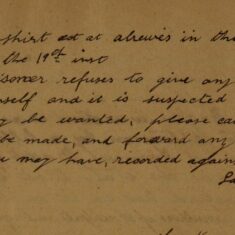 shirt at alrewis in this
the 19th inst
isoner refuses to give any
self and it is suspected
y be wanted, please ca
be made, and forward any
u may have, recorded again